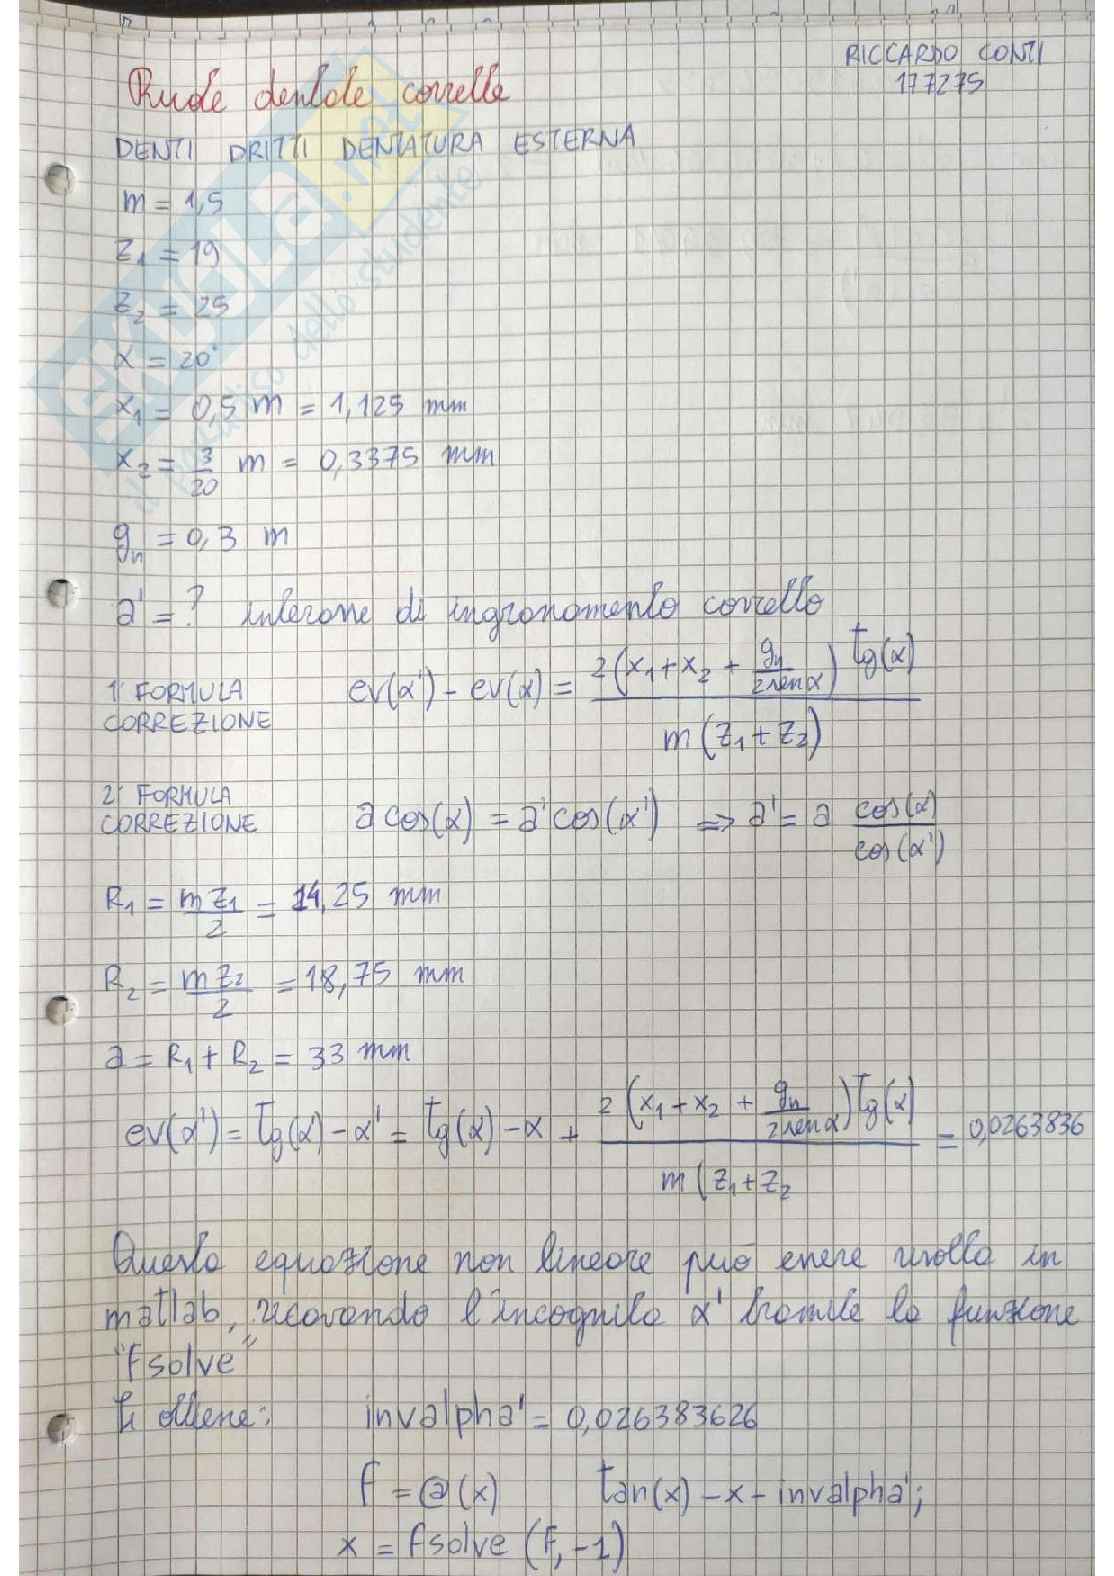 RICCARDO CONTI
177275
Ruote dentate corrette
DENTI DRITTI DENTATURA ESTERNA
m = 1,5
z₁ = 19
z₂ = 25
α = 20°
x₁ = 0,5 m = 1,125 mm
x₂ = 3/20 m = 0,3375 mm
gₙ = 0,3 m
a' = ? interasse di ingranamento corretto
1ª FORMULA CORREZIONE ev(α') - ev(α) = 2(x₁+x₂ + gₙ/2senα) tg(α) / m(z₁+z₂)
2ª FORMULA CORREZIONE a cos(α) = a' cos(α') ⇒ a' = a cos(α)/cos(α')
R₁ = mz₁/2 = 14,25 mm
R₂ = mz₂/2 = 18,75 mm
a = R₁ + R₂ = 33 mm
ev(α') = tg(α') - α' = tg(α) - α + 2(x₁+x₂ + gₙ/2senα) tg(α) / m(z₁+z₂ = 0,0263836
Questa equazione non lineare può essere risolta in
matlab, ricavando l'incognita α' tramite la funzione
"fsolve"
Si ottiene: invalpha' = 0,026383626
f = @(x) tan(x) - x - invalpha';
x = fsolve (f, -1)
SKUOLA.net
il paradiso dello studente